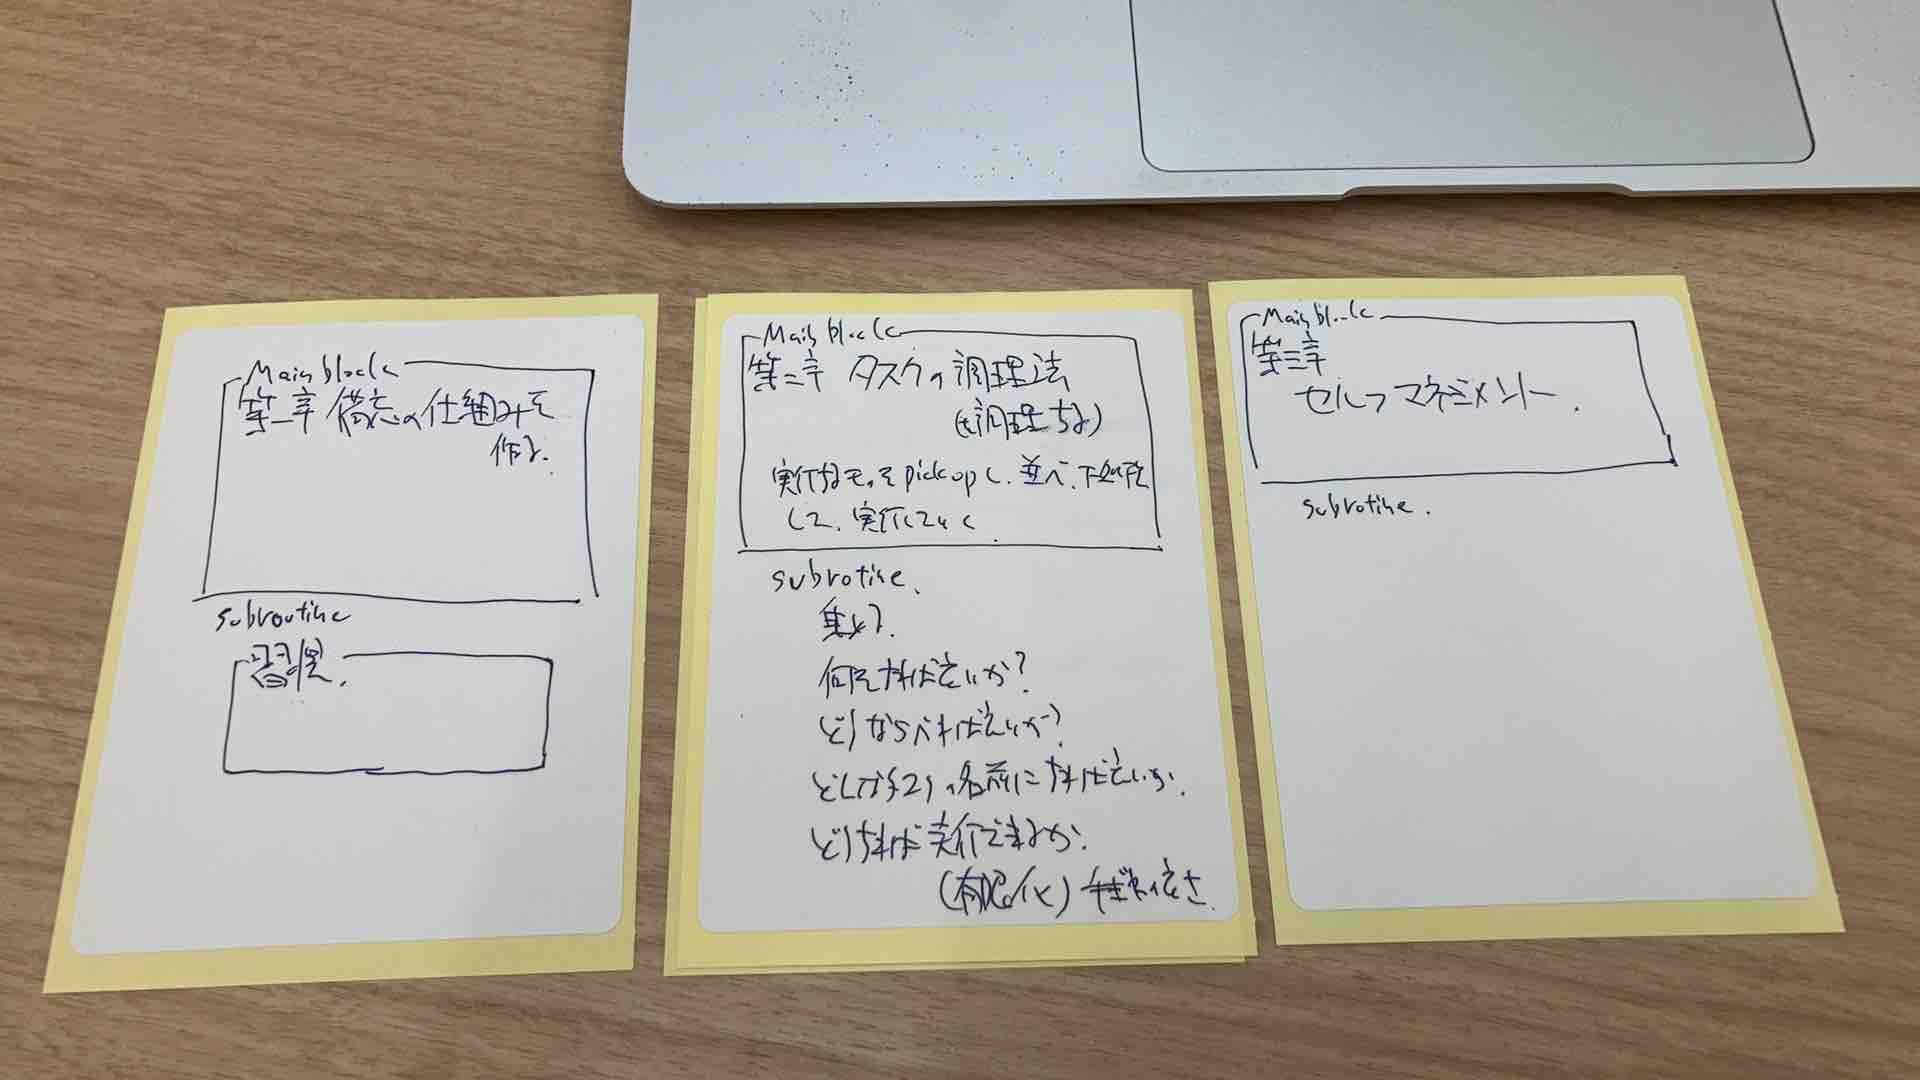 Main block
第一章 備忘の仕組みを
作る.
subroutine
習慣.
Main block
第二章 タスクの調理法
(を調理する)
実行するモノを pick upし、並べ、下処理
して、実行していく
subrotine.
集める.
何をすればよいか?
どうならべればよいか?
の名前にすればよいか.
どうすれば実行できるか.
Main block
第三章
セルフマネジメント.
subrotine.